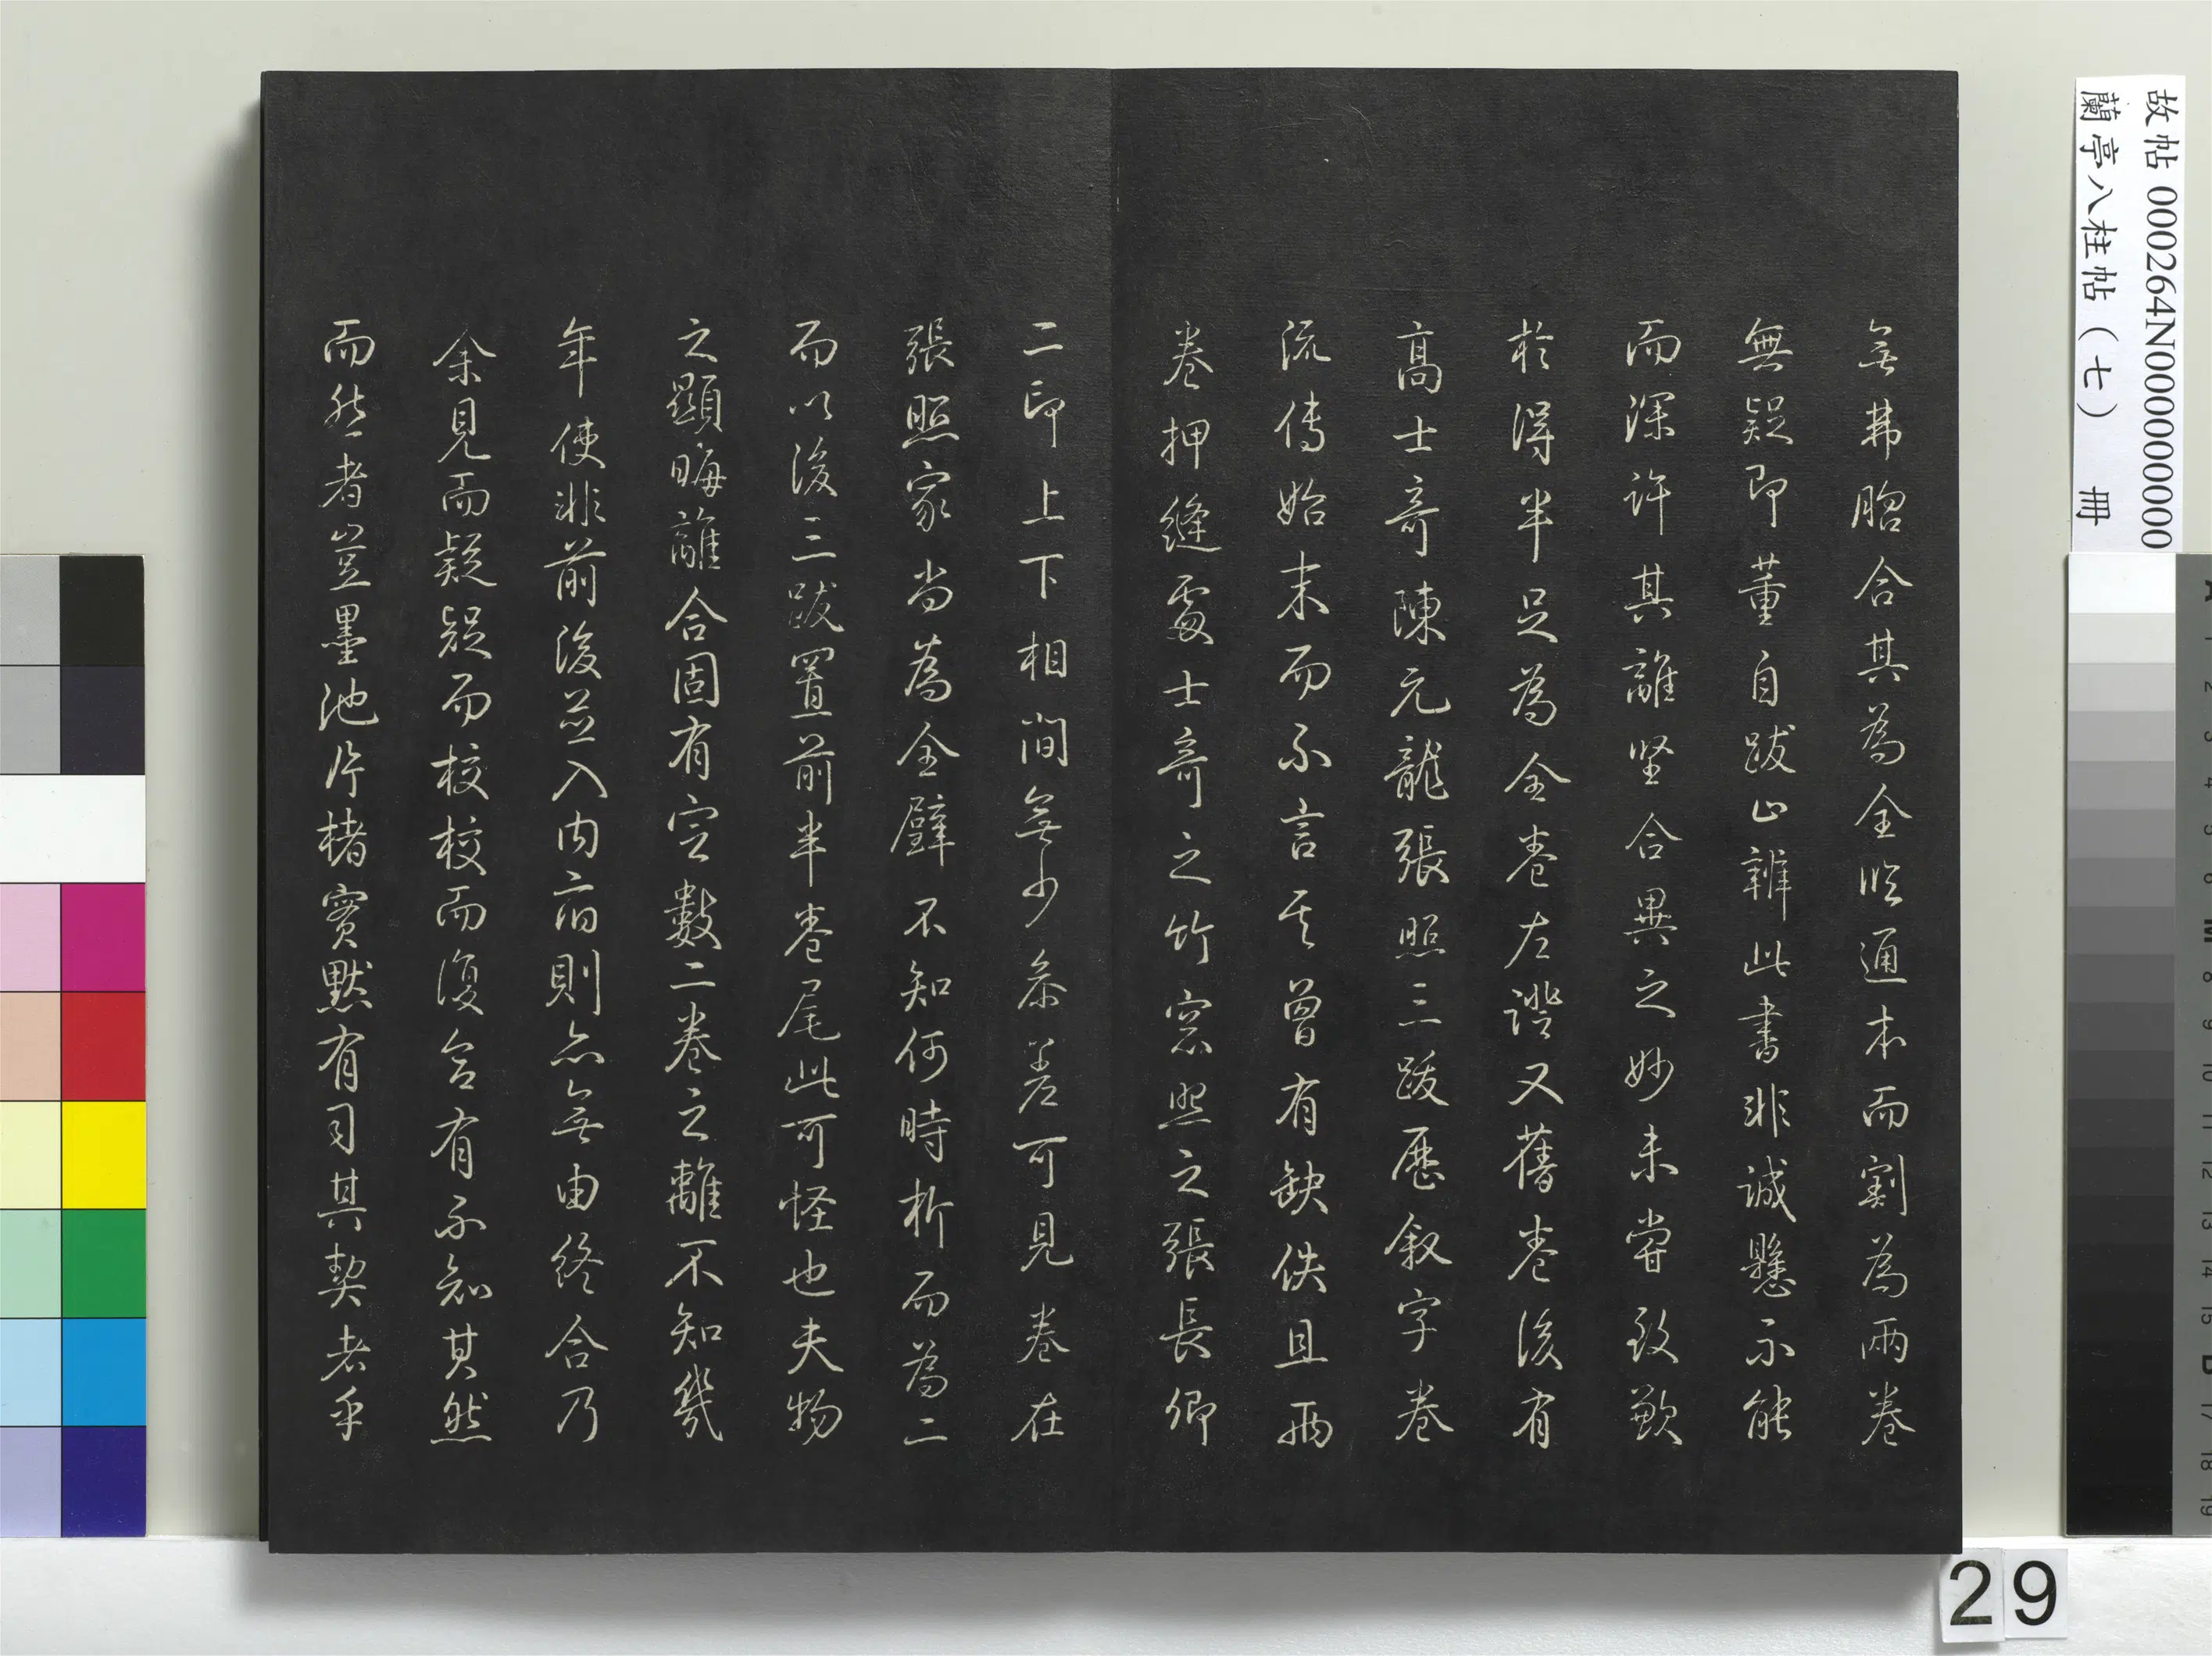 無弗脗合其為全臨通本而割為兩卷
無疑即董自跋必辦此書非誠懸不能
而深許其離堅合異之妙未嘗致歉
於得半足為全卷左證又舊卷後有
高士奇陳元龍張照三跋歷叙字卷
流傳始末而不言其曾有缺佚且兩
卷押縫處士奇之竹窓照之張長卿
二印上下相間無少參差可見卷在
張照家尚為全璧不知何時析而為二
而以後三跋置前半卷尾此可怪也夫物
之顯晦離合固有定數二卷之離不知幾
年使非前後並入內府則亦無由終合乃
余見而疑疑而校校而復合有不知其然
而然者豈墨池片楮實默有司其契者乎
故帖 000264N000000000
蘭亭八柱帖（七） 冊
29